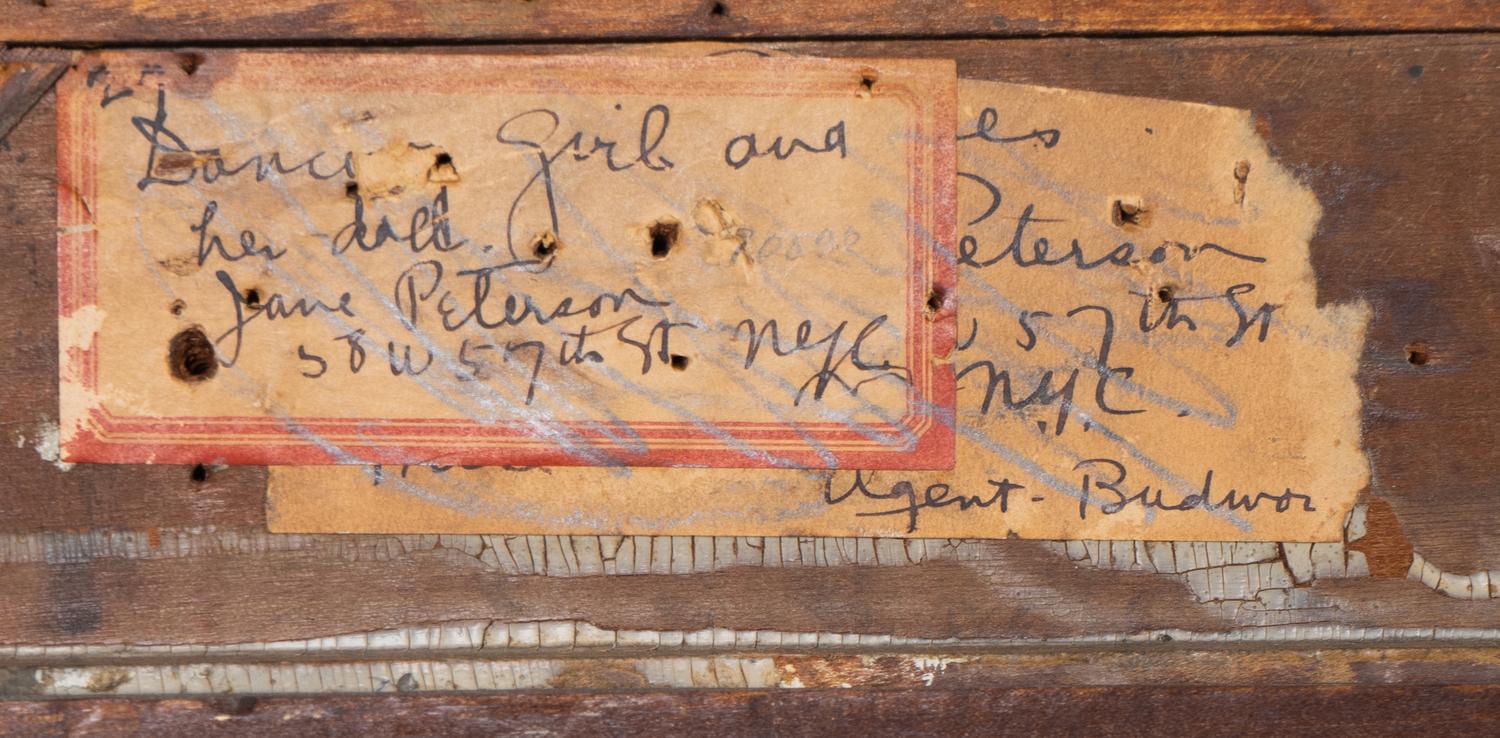 "L"
Danci Girl and
her doll.
Jane Peterson
58 W 57th St NYC
es
Peterson
57th St
N.Y.C.
Agent - Budwor